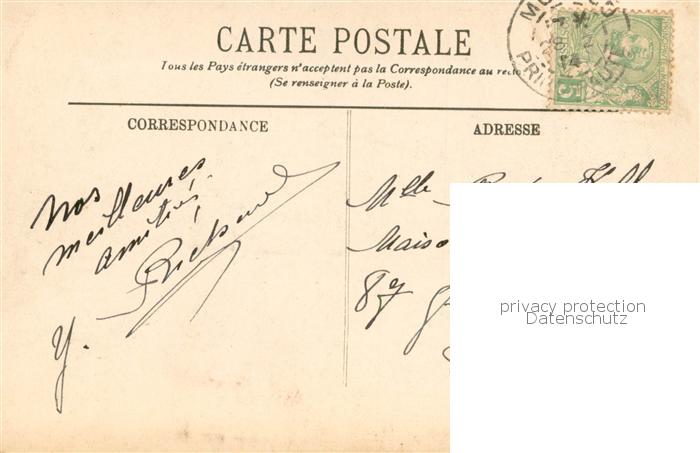 CARTE POSTALE
Tous les Pays étrangers n'acceptent pas la Correspondance au recto
(Se renseigner à la Poste).
CORRESPONDANCE
ADRESSE
Nos
meilleures
amitiés,
Y.
Mlle
Maiso
87
5
privacy protection
Datenschutz